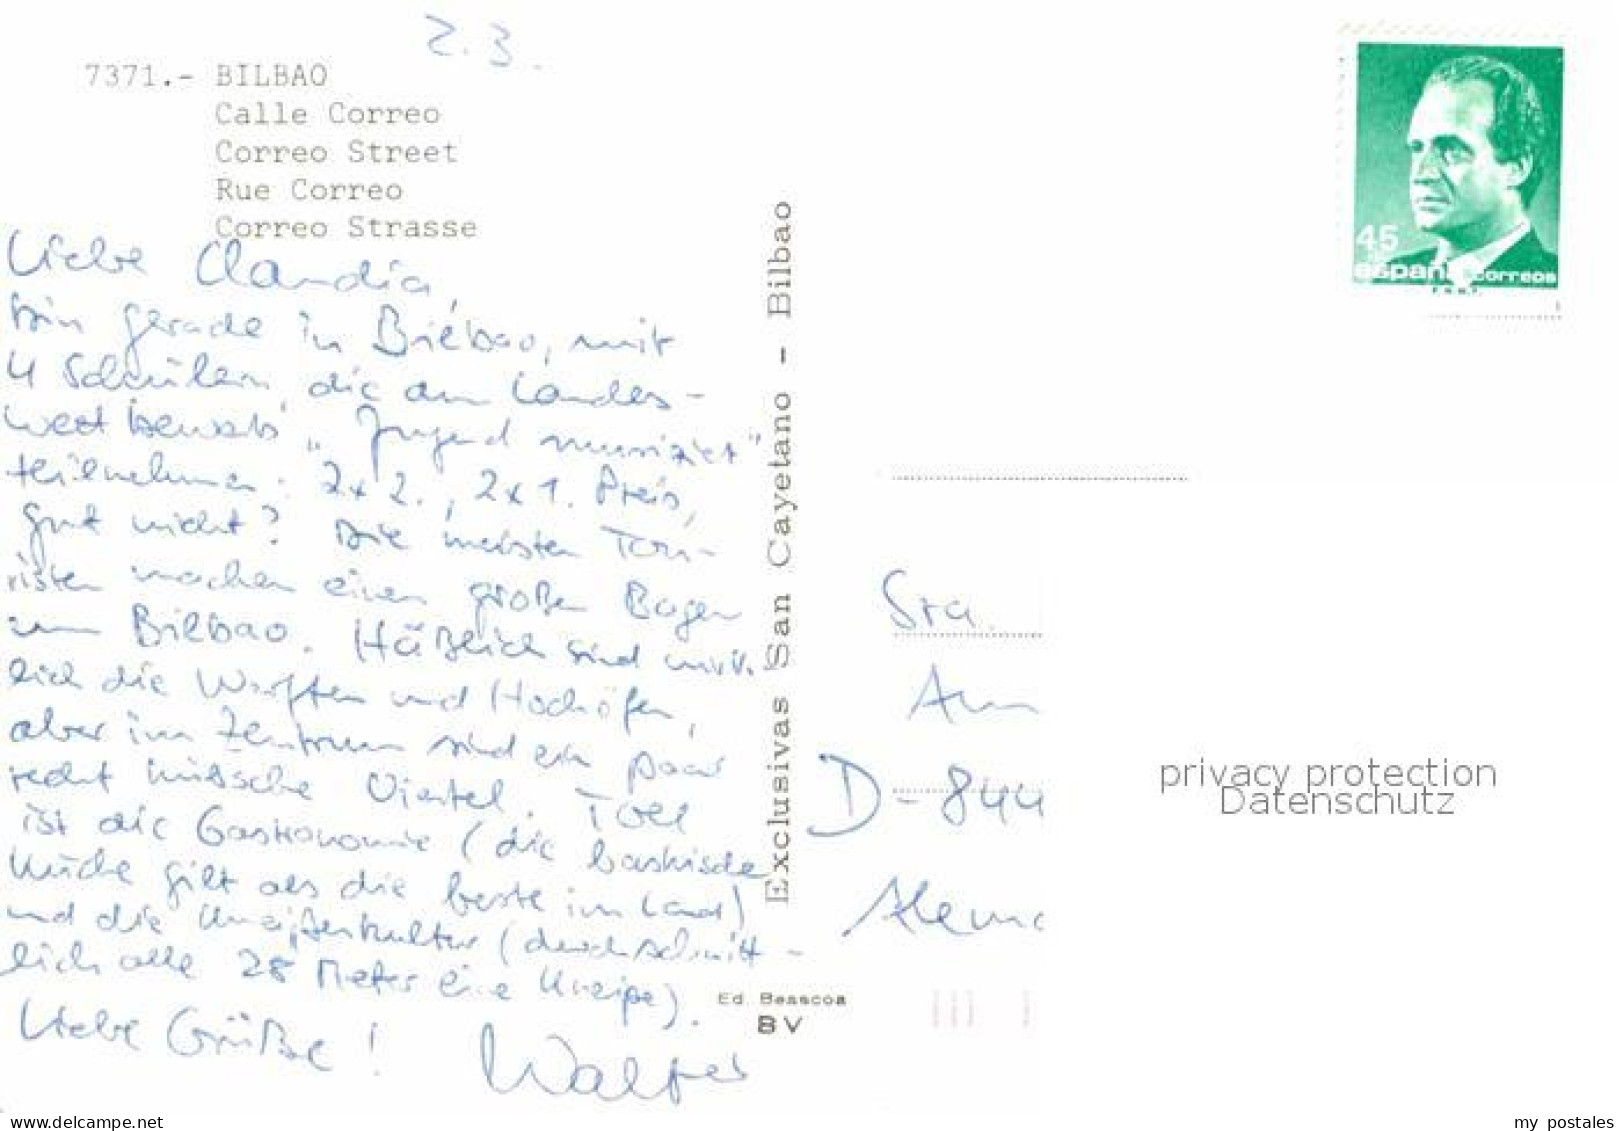 2.3.
7371.- BILBAO
Calle Correo
Correo Street
Rue Correo
Correo Strasse
Liebe Claudia,
bin gerade in Bilbao, mit
4 Schülern, die am Landes-
wettbewerb „Jugend musiziert"
teilnehmen. 2x2., 2x1. Preis,
gut nicht? Die meisten Tou-
risten machen einen großen Bogen
um Bilbao. Häßlich sind wirk-
lich die Werften und Hochöfen,
aber im Zentrum sind ein paar
recht hübsche Viertel. Toll
ist die Gastronomie (die baskische
Küche gilt als die beste im Land)
und die Kneipenkultur (durchschnitt-
lich alle 28 Meter eine Kneipe).
Liebe Grüße! Walter
Exclusivas San Cayetano - Bilbao
Ed. Beascoa
BV
45
españa correos
Sra.
D-844
Alema
privacy protection
Datenschutz
www.delcampe.net
my_postales